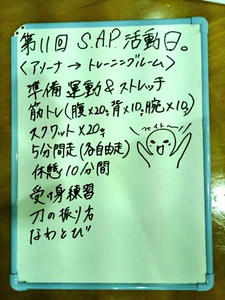 第11回 S.A.P.活動日。
〈アリーナ → トレーニングルーム〉
準備運動&ストレッチ
筋トレ(腹×20,背×10,腕×10)
スクワット×20
5分間走(各自走)
休憩10分間
受け身練習
刀の振り方
なわとび